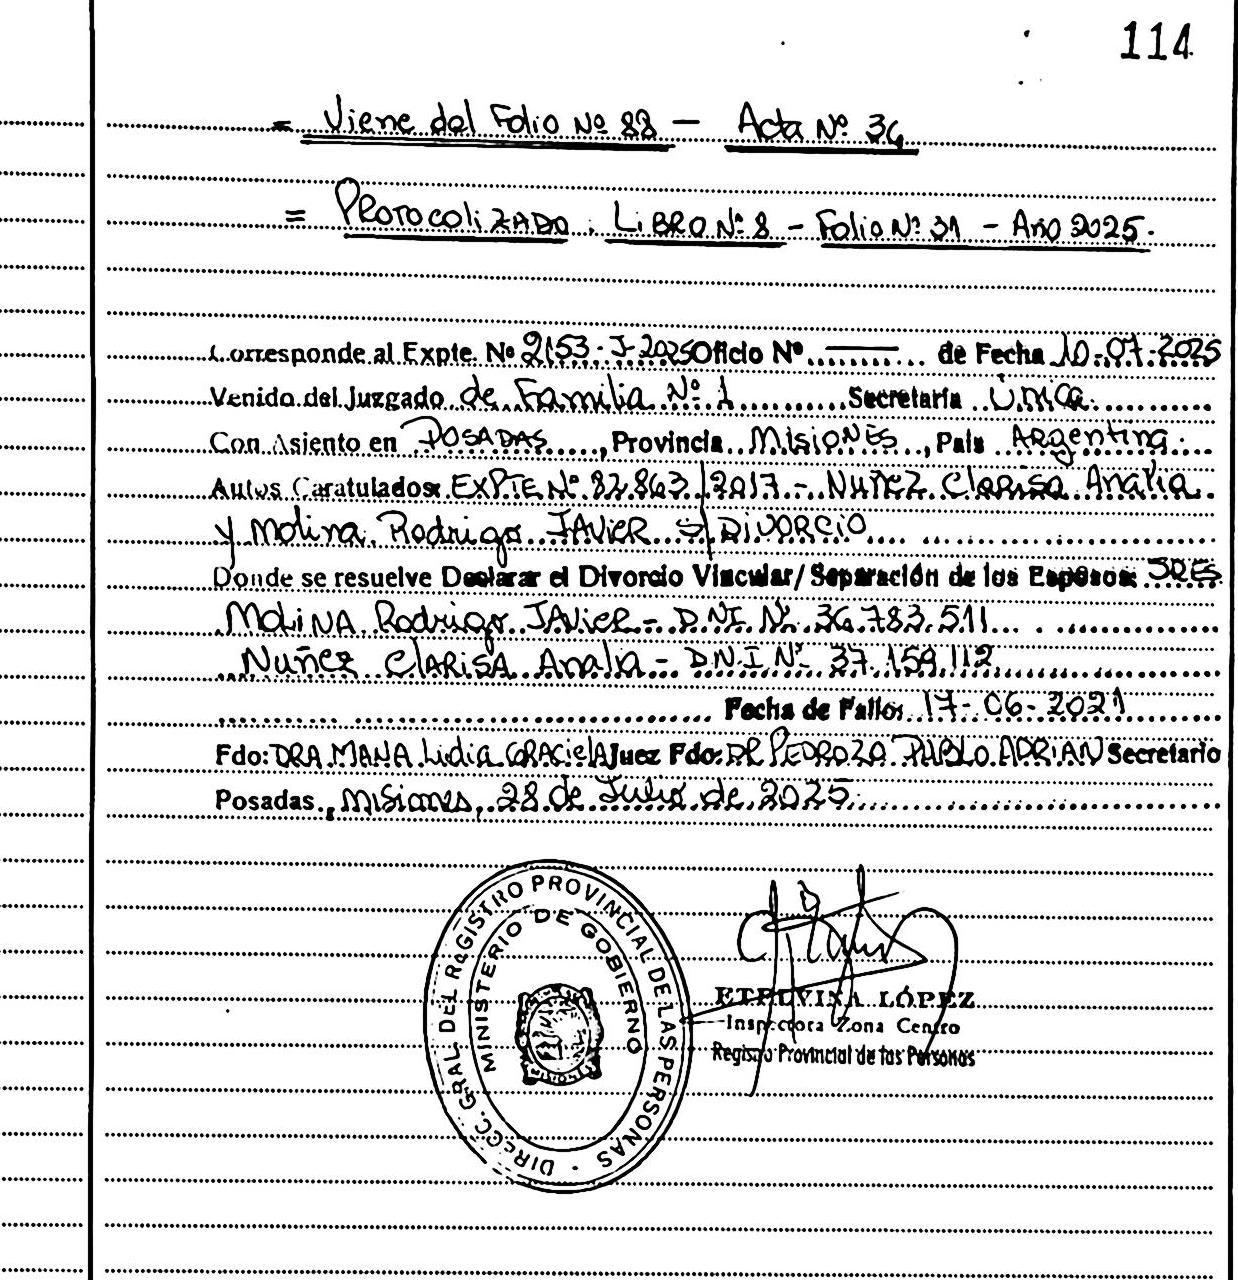 114
= Viene del Folio Nº 88 — Acta Nº 36
= Protocolizado. Libro Nº 8 - Folio Nº 31 - Año 2025.
Corresponde al Expte. Nº 2153-J-2025 Oficio Nº ——— de Fecha 10-07-2025
Venido del Juzgado de Familia Nº 1 Secretaría Única
Con Asiento en Posadas, Provincia Misiones, País Argentina.
Autos Caratulados: EXPTE Nº 82.863/2017 - Nuñez Clarisa Analia
y Molina Rodrigo Javier S/ Divorcio
Donde se resuelve Declarar el Divorcio Vincular/ Separación de los Esposos: SRES
Molina Rodrigo Javier - D.N.I. Nº 36.783.511
Nuñez Clarisa Analia - D.N.I Nº 37.159.112
Fecha de Fallo: 17-06-2021
Fdo: DRA Lidia Graciela Juez Fdo: DR PEDROZA PABLO ADRIAN Secretario
Posadas, Misiones, 28 de Julio de 2025.
DIRECC. GRAL. DEL REGISTRO PROVINCIAL DE LAS PERSONAS
MINISTERIO DE GOBIERNO
ETELVINA LÓPEZ
Inspectora Zona Centro
Registro Provincial de las Personas